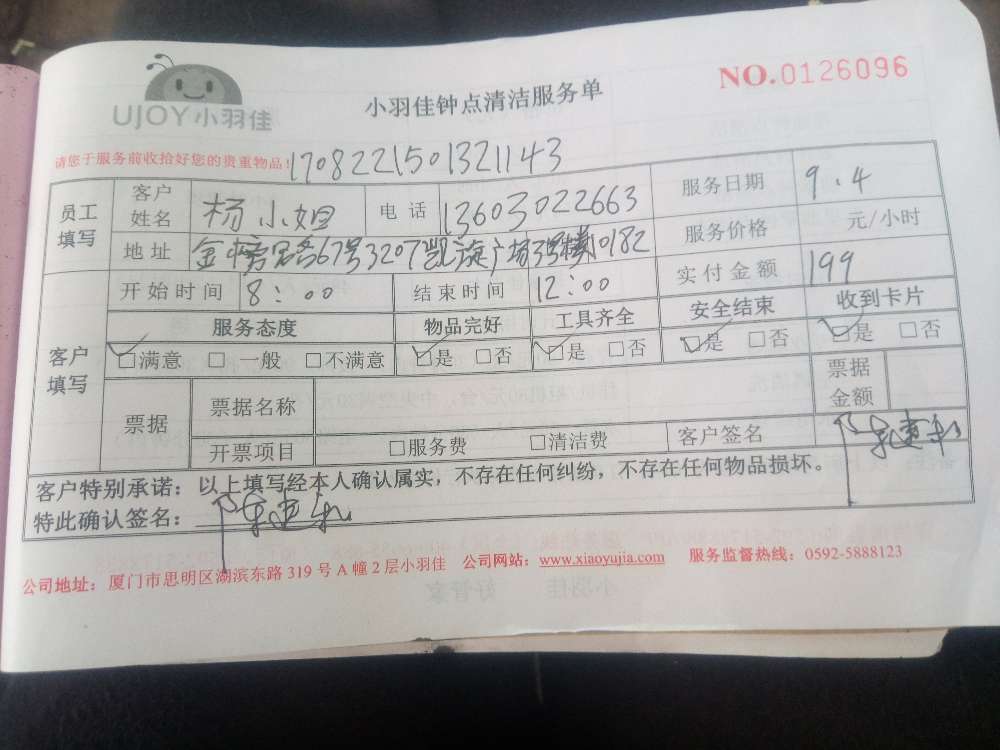 UJOY小羽佳
小羽佳钟点清洁服务单
NO.0126096
请您于服务前收拾好您的贵重物品! 1708221501321143
员工填写 客户姓名 杨小姐 电话 13603022663 服务日期 9.4
地址 金榜 67号3207凯旋广场 0182 服务价格 元/小时
开始时间 8:00 结束时间 12:00 实付金额 199
客户填写 服务态度 物品完好 工具齐全 安全结束 收到卡片
☑满意 □一般 □不满意 ☑是 □否 ☑是 □否 ☑是 □否 ☑是 □否
票据 票据名称 票据金额
开票项目 □服务费 □清洁费 客户签名
客户特别承诺：以上填写经本人确认属实，不存在任何纠纷，不存在任何物品损坏。
特此确认签名：
公司地址：厦门市思明区湖滨东路 319 号 A 幢 2 层小羽佳 公司网站：www.xiaoyujia.com 服务监督热线：0592-5888123